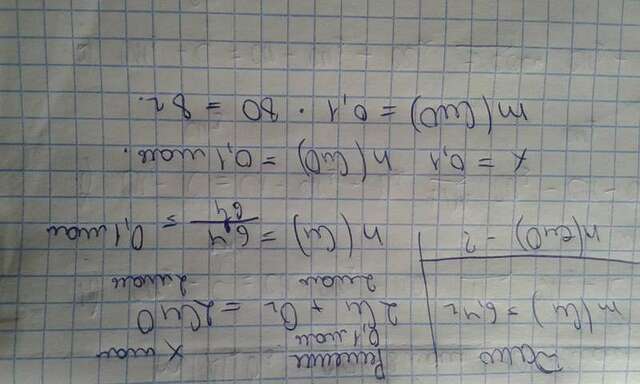 Дано Решение
0,1 моль X моль
m(Cu) = 6,4 г 2Cu + O₂ = 2CuO
2 моль 2 моль
n(CuO) - ? n(Cu) = 6,4 / 64 = 0,1 моль
x = 0,1 n(CuO) = 0,1 моль.
m(CuO) = 0,1 · 80 = 8 г.